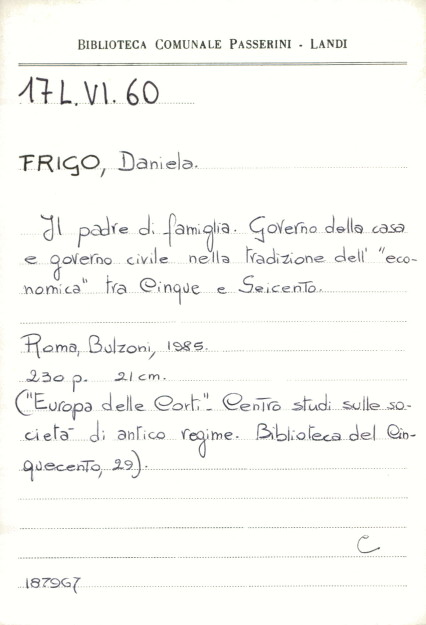 BIBLIOTECA COMUNALE PASSERINI - LANDI
17 L. VI. 60
FRIGO, Daniela.
Il padre di famiglia. Governo della casa
e governo civile nella tradizione dell' "eco-
nomica" tra Cinque e Seicento.
Roma, Bulzoni, 1985.
230 p. 21 cm.
("Europa delle Corti". Centro studi sulle so-
cietà di antico regime. Biblioteca del Cin-
quecento, 29).
C
187967